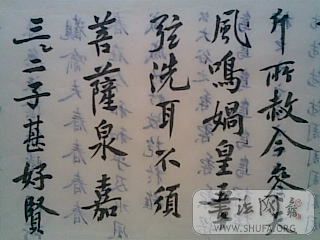 斤所赦今參
風鳴媧皇
弦洗耳不須
菩薩泉嘉
三二子甚好賢
WWW.SHUFA.ORG